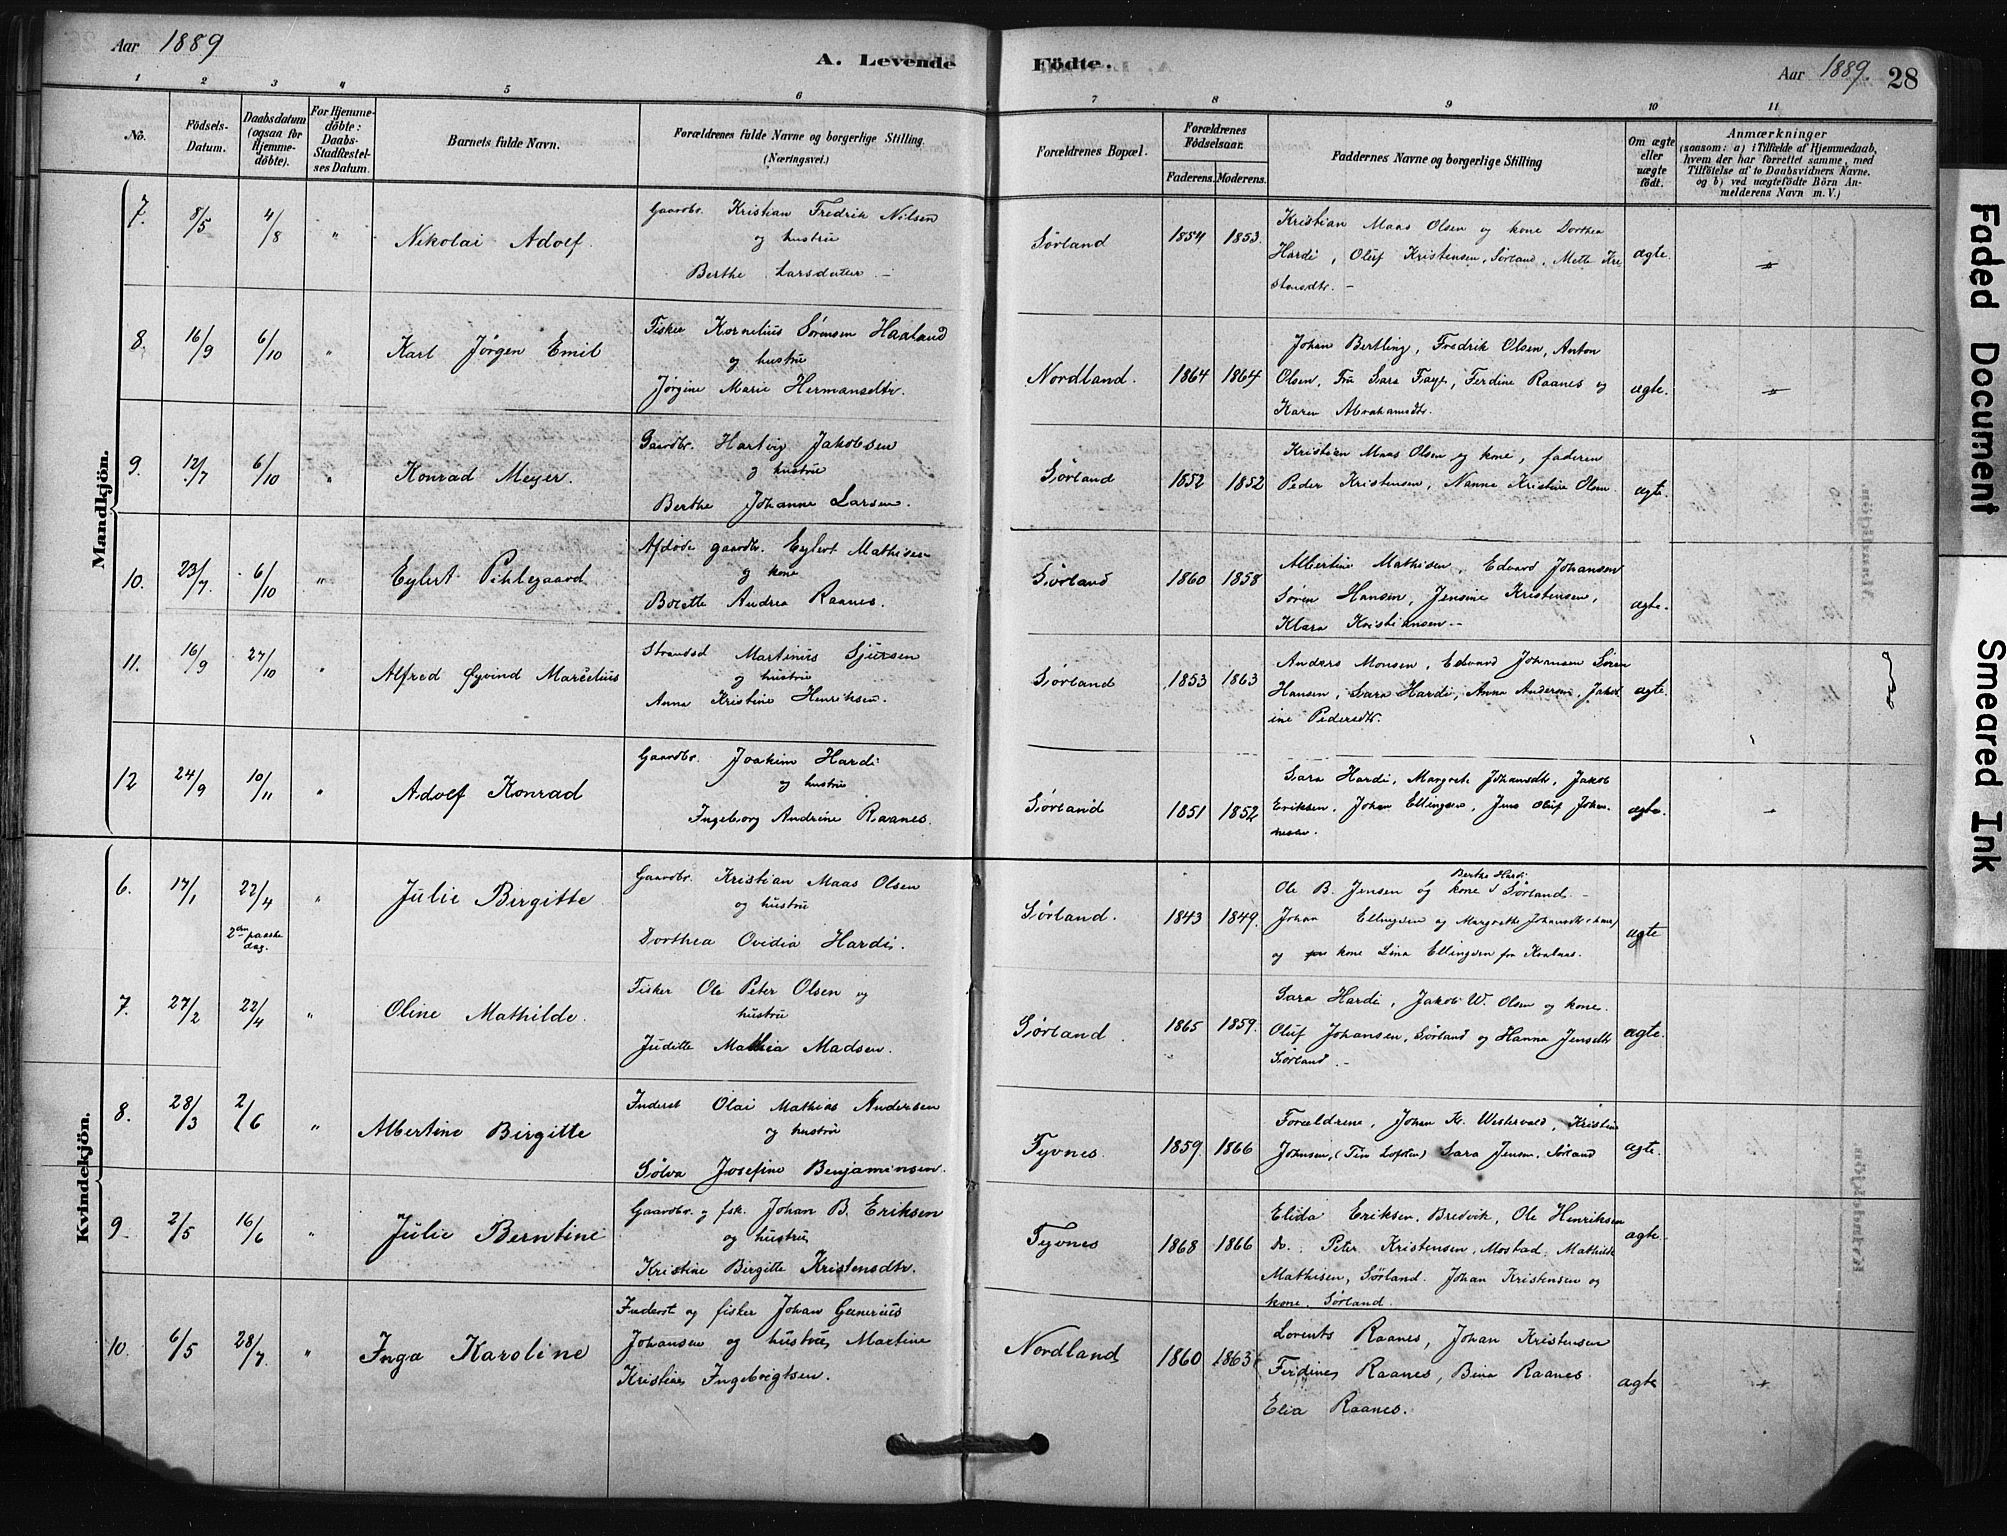 Aar 1889
A. Levende Födte.
Aar 1889. 28
1 2 3 " 5 6 7 8 9 10 11
No.
Födsels-Datum.
Daabsdatum (ogsaa for Hjemme-döbte).
For Hjemme-döbte: Daabs-Stadfæstel-ses Datum.
Barnets fulde Navn.
Forældrenes fulde Navne og borgerlige Stilling (Næringsvei.)
Forældrenes Bopæl.
Forældrenes Födselsaar.
Faderens. Moderens.
Faddernes Navne og borgerlige Stilling
Om ægte eller uægte født.
Anmærkninger
(saasom: a) i Tilfælde af Hjemmedaab,
hvem der har forrettet samme, med
Tilföielse af to Daabsvidners Navne.
og b) ved uægtefödte Börn An-
melderens Navn m. V.)
Mandkjön.
7. 8/5 4/8 " Nikolai Adolf.
Gaardbr. Kristian Fredrik Nilsen
og hustru
Berthe Larsdatter –
Sørland 1854 1853.
Kristian Maas Olsen og kone Dorthea
Hardi, Oluf Kristensen, Sørland, Mette Kri
stensdtr. –
ægte.
8. 16/9 6/10 " Karl Jørgen Emil
Fisker Kornelius Sørensen Haaland
og hustru
Jørgine Marie Hermansdtr.
Nordland. 1864 1864
Johan Bertling, Fredrik Olsen, Anton
Olsen, Fru Sara Faye, Ferdine Raanes og
Karen Abrahamsdtr.
ægte.
9. 12/7 6/10 " Konrad Meyer.
Gaardbr. Hartvig Jakobsen
og hustru
Berthe Johanne Larsen.
Sørland 1852 1852
Kristian Maas Olsen og kone, faderen
Peder Kristensen, Nanna Kristine Olsen
ægte.
10. 23/7. 6/10 " Eylert Pihlegaard
Afdøde gaardbr. Eylert Mathisen
og kone
Bolette Andrea Raanes.
Sørland 1860 1858
Albertine Mathisen, Edvard Johansen
Søren Hansen, Jensine Kristensen,
Klara Kristiansen –
ægte.
11. 16/9 27/10 " Alfred Øyvind Marcelius
Strandsd Martinus Sjursen
og hustru
Anna Kristine Henriksen.
Sørland 1853 1863
Anders Monsen, Edvard Johansen Søren
Hansen, Sara Hardi, Anna Andersen, Jakob
ine Pedersdtr.
ægte.
12 24/9 10/11 " Adolf Konrad
Gaardbr. Joakim Hardi
og hustru
Ingeborg Andrine Raanes.
Sørland 1851 1852
Sara Hardi, Margrete Johansdtr, Jakob
Eriksen, Johan Ellingsen, Jens Oluf Johan-
nesen.
ægte.
Kvindekjön.
6. 17/1 22/4 2den paaske dag. " Julie Birgitte
Gaardbr. Kristian Maas Olsen
og hustru
Dorthea Ovidia Hardi.
Sørland. 1843 1849.
Berthe Hardi
Ole B. Jensen og kone Sørland. –
Johan Ellingsen og Margrethe Johansdtr
og kone Lina Ellingsen fra
ægte
7. 27/2 22/4 " Oline Mathilde.
Fisker Ole Peter Olsen og
hustru
Juditte Mathia Madsen.
Sørland. 1865 1859.
Sara Hardi, Jakob W. Olsen og kone.
Oluf Johansen, Sørland og Hanna Jensdtr
Sørland. –
ægte.
8. 28/3 2/6 " Albertine Birgitte
Inderst Olai Mathias Andersen
og hustru
Sølva Josefine Benjaminsen.
Tyvnes. 1859. 1866
Forældrene, Johan Kr. Westervold, Kristine
Johnsen, Sara Jensen, Sørland
ægte.
9 2/5 16/6 " Julie Berntine
Gaardbr. og fsk. Johan B. Eriksen
og hustru
Kristine Birgitte Kristensdtr.
Tyvnes 1868 1866
Elida Eriksen, Bredvik, Ole Henriksen
do. Peter Kristensen, Mostad. Mathilde
Mathisen, Sørland. Johan Kristensen og
kone. Sørland.
ægte
10. 6/5 28/7 " Inga Karoline
Inderst og fisker Johan Gunerius
Johansen og hustru Martine
Kristine Ingebrigtsen.
Nordland 1860 1863
Lorents Raanes, Johan Kristensen
Ferdines Raanes, Bina Raanes.
Elia Raanes.
ægte
Faded Document
Smeared Ink